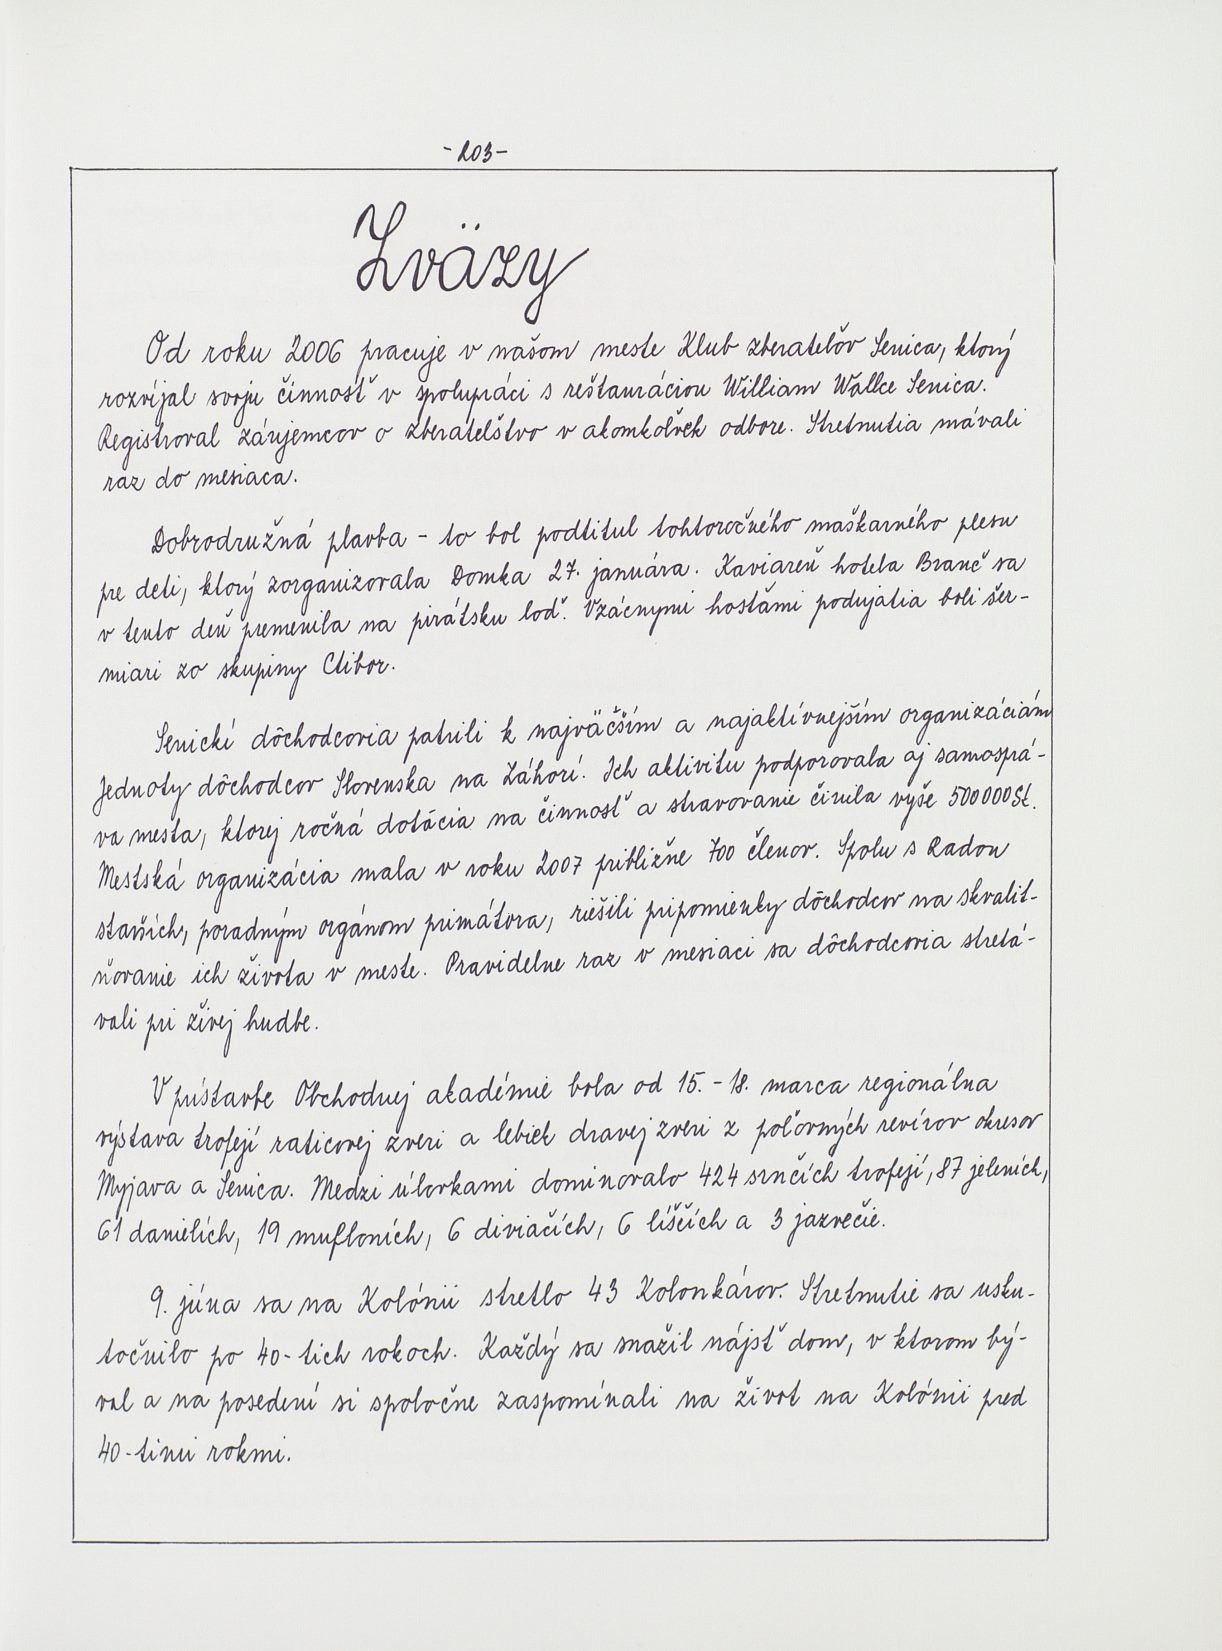 -203-
Zväzy
Od roku 2006 pracuje v našom meste Klub zberateľov Senica, ktorý
rozvíjal svoju činnosť v spolupráci s reštauráciou William Wallce Senica.
Registroval záujemcov o zberateľstvo v akomkoľvek odbore. Stretnutia mávali
raz do mesiaca.
Dobrodružná plavba - to bol podtitul tohtoročného maškarného plesu
pre deti, ktorý zorganizovala Domka 27. januára. Kaviareň hotela Branč sa
v tento deň premenila na pirátsku loď. Vzácnymi hosťami podujatia boli šer-
miari zo skupiny Ctibor.
Senickí dôchodcovia patrili k najväčším a najaktívnejším organizáciám
Jednoty dôchodcov Slovenska na Záhorí. Ich aktivitu podporovala aj samosprá-
va mesta, ktorej ročná dotácia na činnosť a stravovanie činila vyše 500000 Sk.
Mestská organizácia mala v roku 2007 približne 700 členov. Spolu s Radou
starších, poradným orgánom primátora, riešili pripomienky dôchodcov na skvalit-
ňovanie ich života v meste. Pravidelne raz v mesiaci sa dôchodcovia stretá-
vali pri živej hudbe.
V prístavbe Obchodnej akadémie bola od 15. - 18. marca regionálna
výstava trofejí raticovej zveri a lebiek dravej zveri z poľovných revírov okresov
Myjava a Senica. Medzi úlovkami dominovalo 424 srnčích trofejí, 87 jeleních,
61 danielích, 19 mufloních, 6 diviačích, 6 líščích a 3 jazvečie.
9. júna sa na Kolónii stretlo 43 Kolonkárov. Stretnutie sa usku-
točnilo po 40-tich rokoch. Každý sa snažil nájsť dom, v ktorom bý-
val a na posedení si spoločne zaspomínali na život na Kolónii pred
40-timi rokmi.